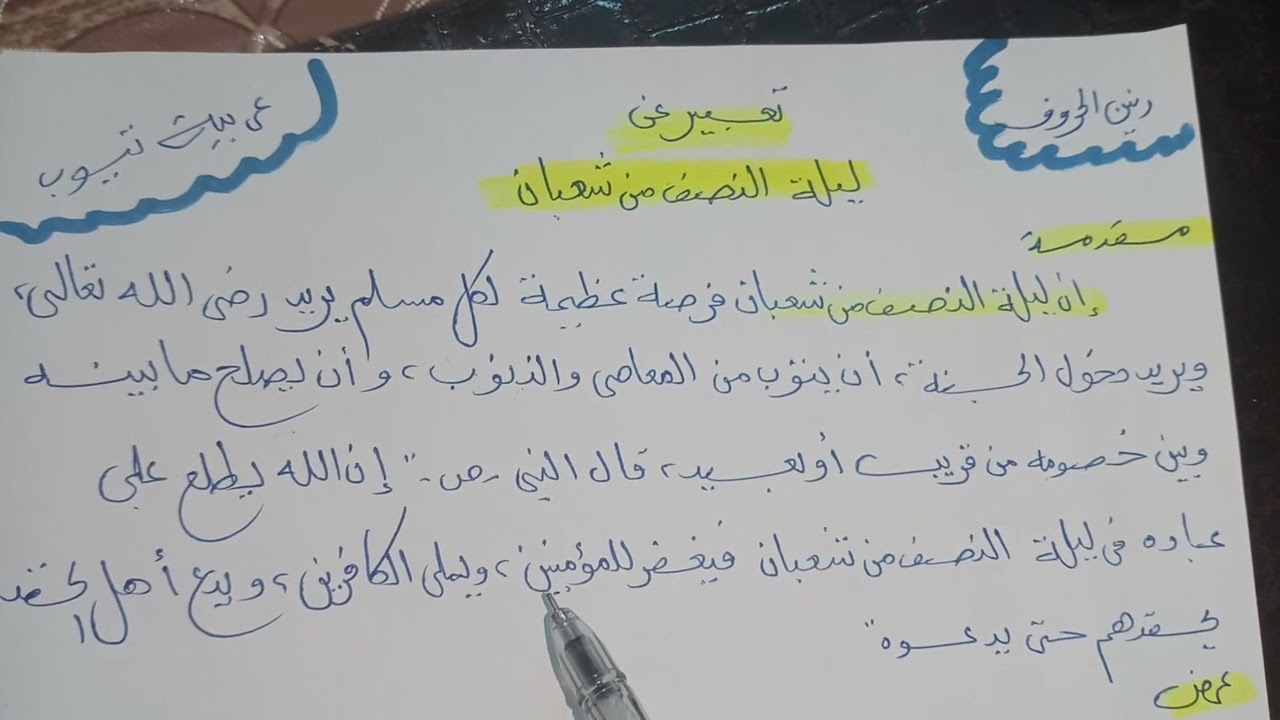 رنين الحروف
تعبير عن
عربية تيوب
ليلة النصف من شعبان
مقدمة
إن ليلة النصف من شعبان فرصة عظيمة لكل مسلم يريد رضى الله تعالى،
ويريد دخول الجنة، أن يتوب من المعاصي والذنوب، وأن يصلح ما بينه
وبين خصومه من قريب أو بعيد، قال النبي -ص- "إن الله يطلع على
عباده في ليلة النصف من شعبان فيغفر للمؤمنين، ويملي الكافرين، ويدع أهل الحقد
بحقدهم حتى يدعوه"
عرض